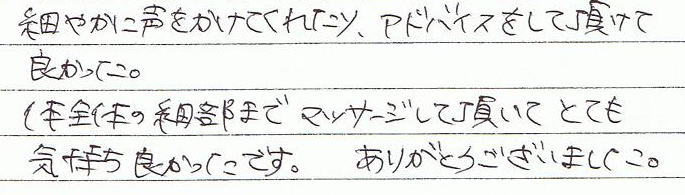 細やかに声をかけてくれたり、アドバイスをして頂けて
良かった。
体全体の細部までマッサージして頂いてとても
気持ち良かったです。 ありがとうございました。